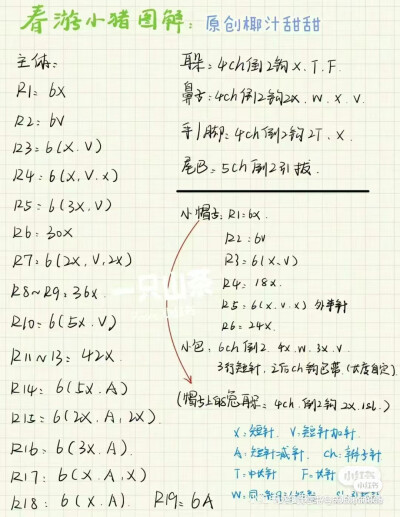 春游小猪图解：原创椰汁甜甜
主体：
R1：6X
R2：6V
R3：6(X.V)
R4：6(X.V.X)
R5：6(3X.V)
R6：30X
R7：6(2X.V.2X)
R8~R9：36X
R10：6(5X.V)
R11~13：42X
R14：6(5X.A)
R15：6(2X.A.2X)
R16：6(3X.A)
R17：6(X.A.X)
R18：6(X.A)
R19=6A
耳朵：4ch倒2钩X.T.F.
鼻子：4ch倒2钩2X.W.X.V.
手/脚：4ch倒2钩2T.X.
尾巴：5ch倒2引拔.
小帽子：R1=6X.
R2：6V
R3=6(X.V)
R4：18X.
R5=6(X.V.X)外半针
R6=24X.
小包：6ch倒2.4X.W.3X.V.
3行短针，之后ch钩包带(长度自定).
4ch.倒2钩2X.1sl.)
X：短针. V：短针加针
A：短针减针. ch：辫子针
T=中长针 F=长针
小红书
一只山茶